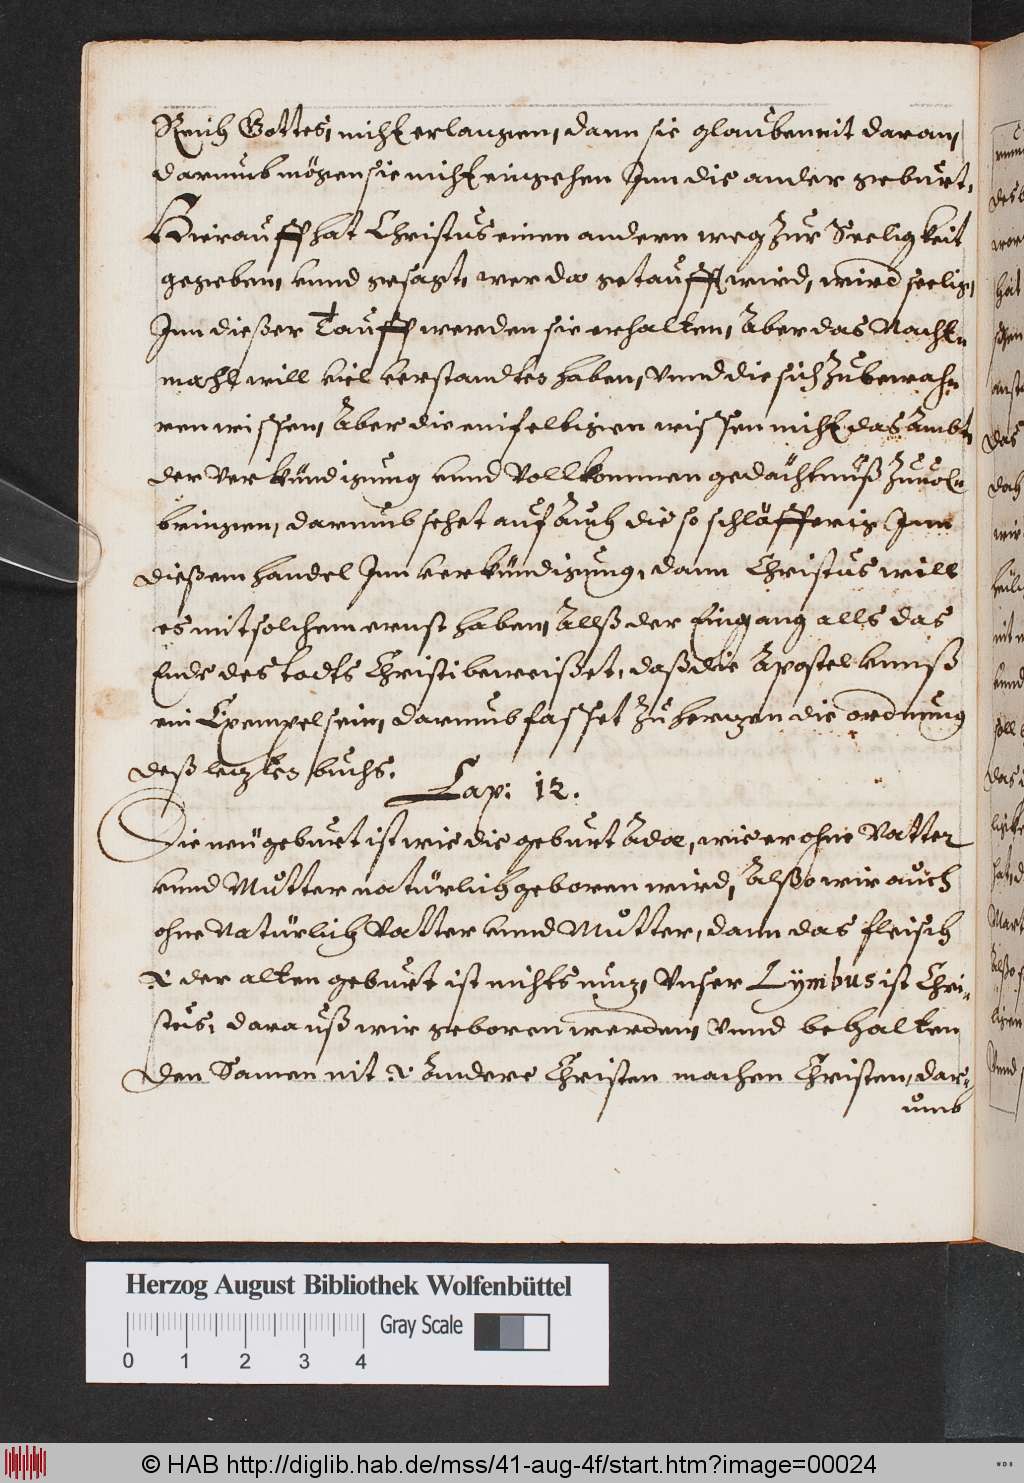 Reich Gottes, nicht erlangen, dann sie glauben nit daran,
darumb mögen sie nicht eingehen Inn die ander geburt,
Hierauff hat Christus einen andern weg Zur Seeligkeit
gegeben, vnnd gesagt, wer da getaufft wird, wird seelig,
Inn dießer Tauff werden sie erhalten, Aber das Nacht-
mahl will viel verstandtes haben, Vnnd die sich Zubewah-
ren wissen, Aber die einfeltigen wissen nicht das Ambt
der Verkündigung vnnd Vollkommen gedächtnuß Zuuol-
bringen, darumb sehet auf Auch die so schläfferig Inn
dießem handel Inn verkündigung, dann Christus will
es mit solchem ernst haben, Allß der Eingang alls das
Ende des todts Christi beweißet, daß die Apostel vnnß
ein Exempel sein, darumb fasset Zu herzen die ordnung
deß letzten buchs.
Cap: 12.
Die neügeburt ist wie die geburt Adæ, wie er ohne Vatter
vnnd Mutter natürlich geboren wird, Alßo wir auch
ohne Natürlich Vatter vnnd Mutter, dann das fleisch
der alten geburt ist nichts nuz, Vnser Lymbus ist Chri-
stus, darauß wir geboren werden, Vnnd behalten
den Samen nit Andere Christen machen Christen, dar-
umb
Herzog August Bibliothek Wolfenbüttel
Gray Scale
0 1 2 3 4
© HAB http://diglib.hab.de/mss/41-aug-4f/start.htm?image=00024